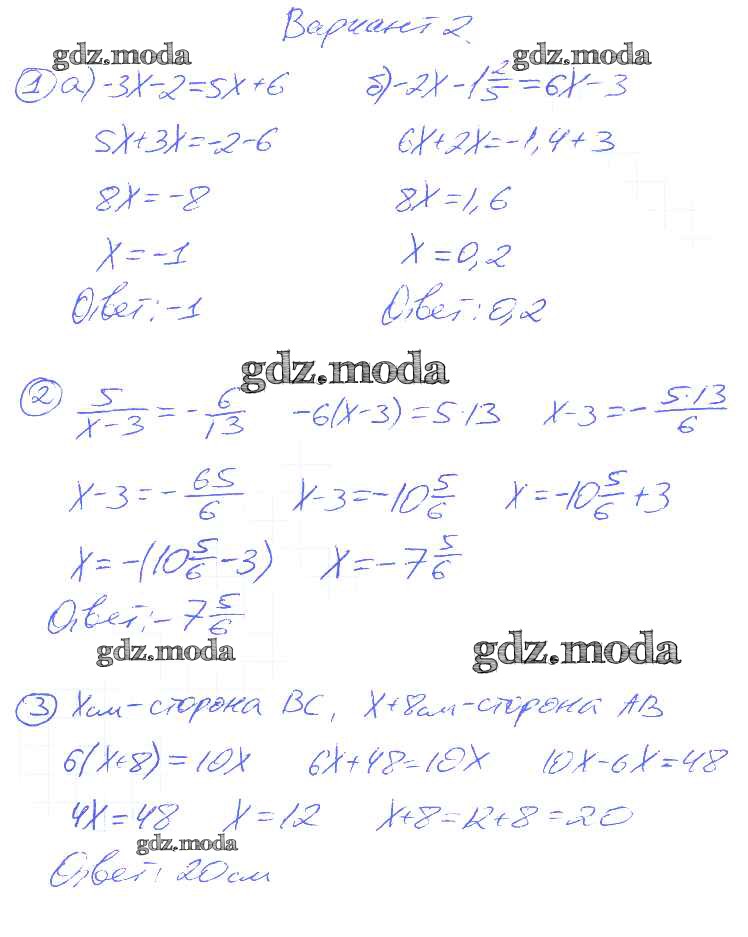 Вариант 2.
gdz.moda gdz.moda
1 а) -3x-2=5x+6 б) -2x-1 2/5=6x-3
5x+3x=-2-6 6x+2x=-1,4+3
8x=-8 8x=1,6
x=-1 x=0,2
Ответ: -1 Ответ: 0,2
gdz.moda
2 5/(x-3)=-6/13 -6(x-3)=5·13 x-3=-(5·13)/6
x-3=-65/6 x-3=-10 5/6 x=-10 5/6+3
x=-(10 5/6-3) x=-7 5/6
Ответ: -7 5/6
gdz.moda gdz.moda
3 xсм-сторона BC, x+8см-сторона AB
6(x+8)=10x 6x+48=10x 10x-6x=48
4x=48 x=12 x+8=12+8=20
gdz.moda
Ответ: 20см